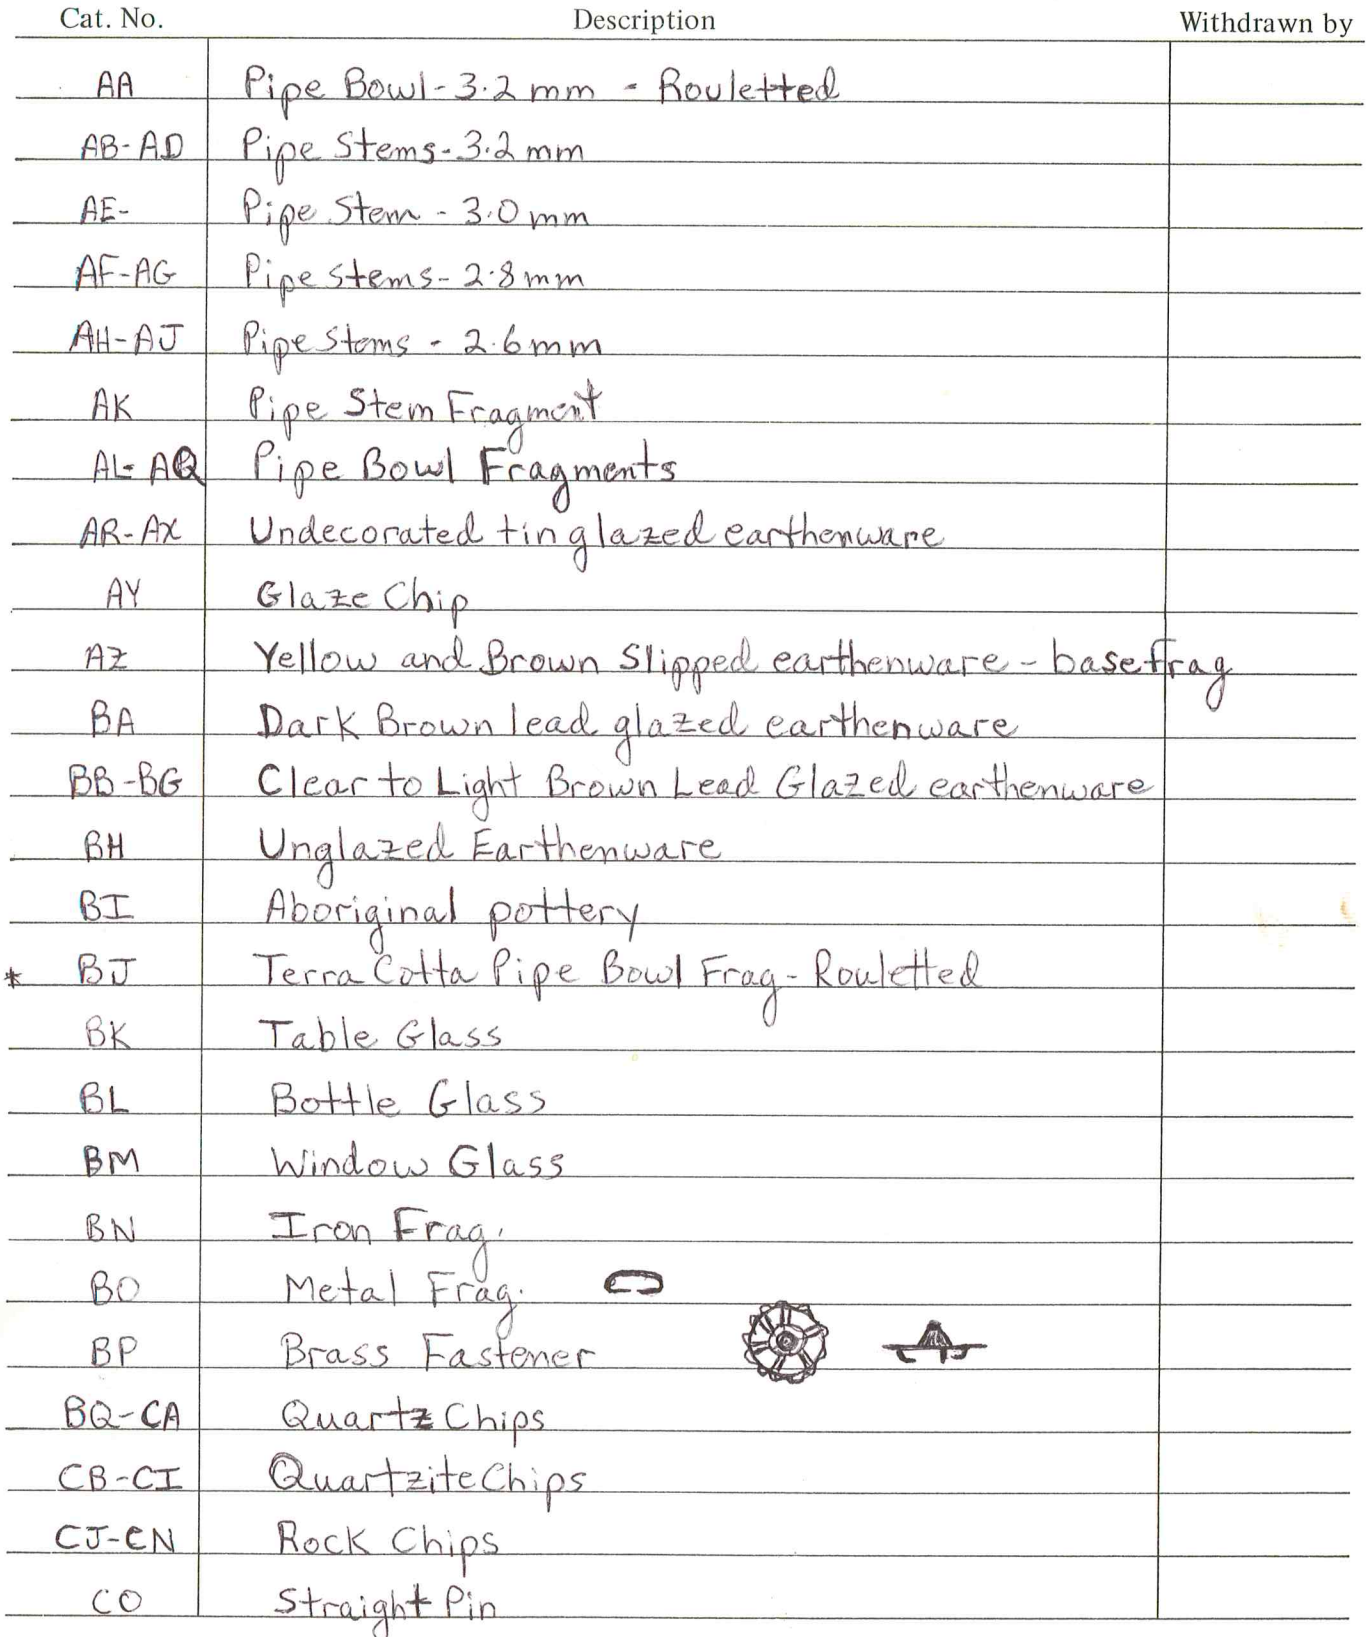 Cat. No. Description Withdrawn by
AA Pipe Bowl - 3.2 mm - Rouletted
AB-AD Pipe Stems - 3.2 mm
AE- Pipe Stem - 3.0 mm
AF-AG Pipe stems - 2.8 mm
AH-AJ Pipe Stems - 2.6 mm
AK Pipe Stem Fragment
AL-AQ Pipe Bowl Fragments
AR-AX Undecorated tin glazed earthenware
AY Glaze Chip
AZ Yellow and Brown Slipped earthenware - base frag
BA Dark Brown lead glazed earthenware
BB-BG Clear to Light Brown Lead Glazed earthenware
BH Unglazed Earthenware
BI Aboriginal pottery
* BJ Terra Cotta Pipe Bowl Frag - Rouletted
BK Table Glass
BL Bottle Glass
BM Window Glass
BN Iron Frag.
BO Metal Frag.
BP Brass Fastener
BQ-CA Quartz Chips
CB-CI Quartzite Chips
CJ-CN Rock Chips
CO Straight Pin